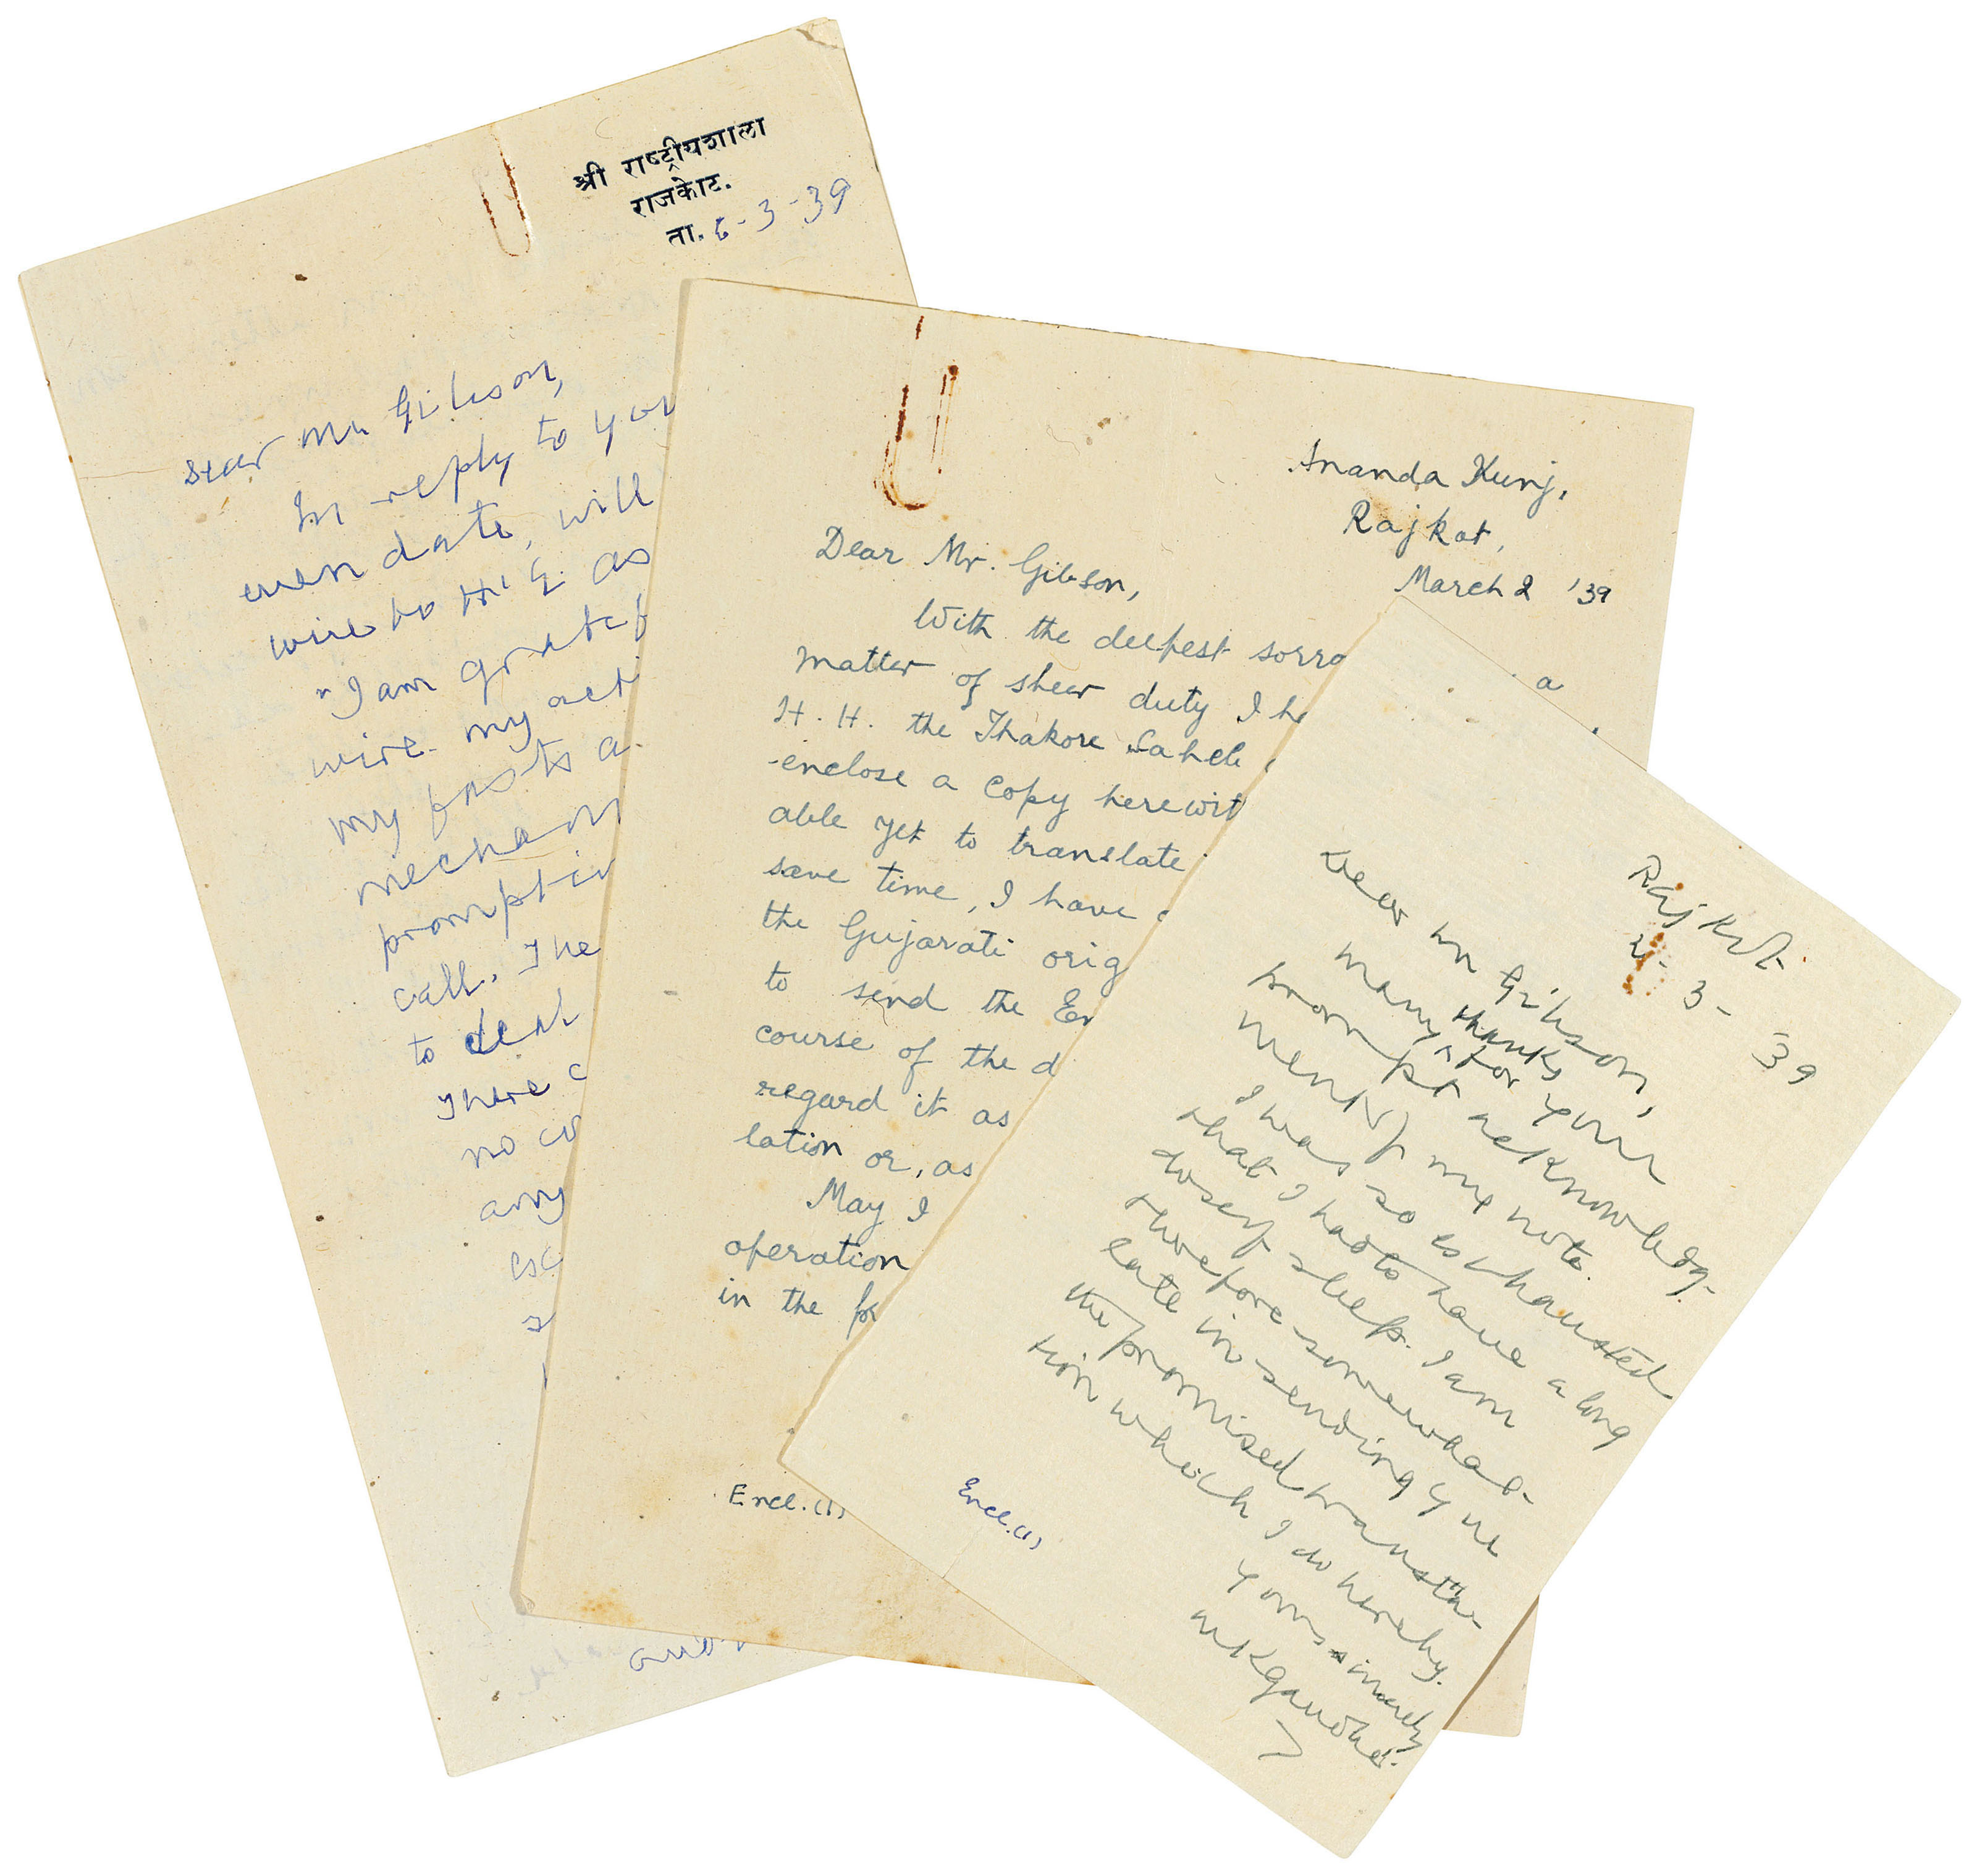 श्री राष्ट्रीयशाला
राजकोट.
ता. ६-3-39
Dear Mr Gibson,
In reply to you
even date, will
wire to H.E. as
"I am gratef
wire. My acti
my fast a
mechan
prompti
call. The
to deal
There c
no co
any
esc
Ananda Kunj,
Rajkot,
March 2 '39
Dear Mr. Gibson,
With the deepest sorro
matter of sheer duty I ha
a
H. H. the Thakore Saheb
enclose a copy herewit
able yet to translate
save time, I have
the Gujarati orig
to send the En
course of the d
regard it as
lation or, as
May I
operation
in the fo
Encl. (1)
Rajkot
2-3-39
Dear Mr Gibson,
Many thanks for your
prompt acknowledg-
ment of my note.
I was so exhausted
that I had to have a long
dose of sleep. I am
therefore somewhat
late in sending you
the promised transla-
tion which I do hereby.
Yours sincerely
MKGandhi
Encl. (1)